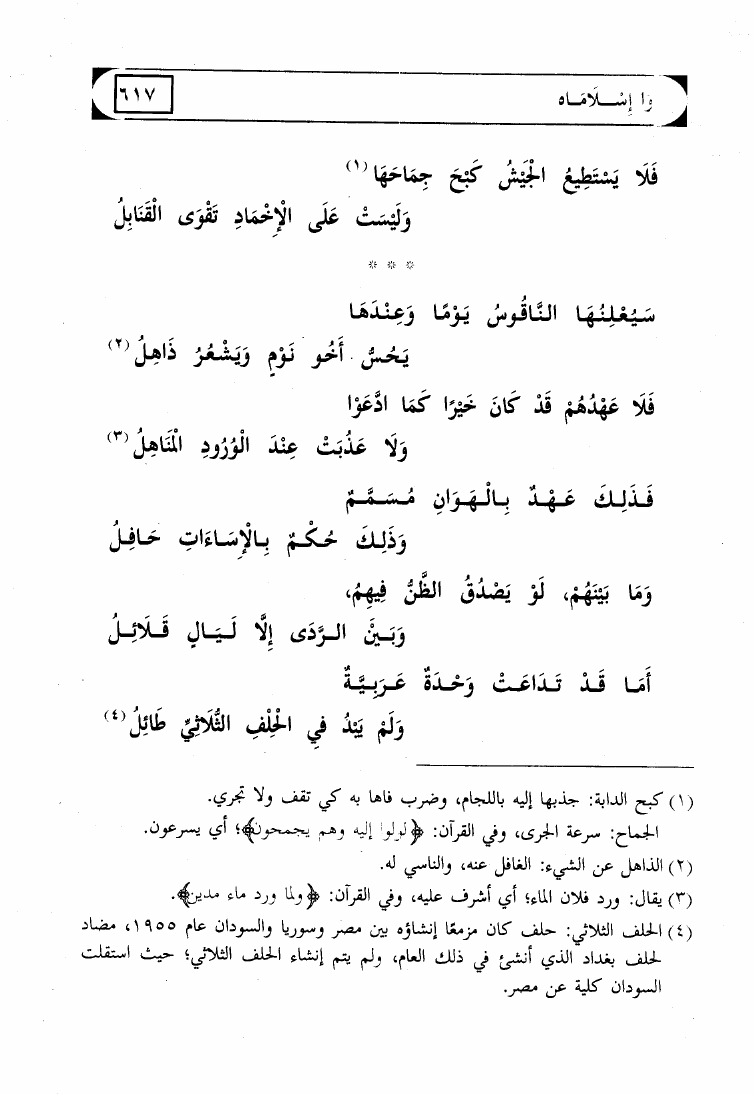 وَا إِسْـلَامَـاه
٦١٧
فَلَا يَسْتَطِيعُ الْجَيْشُ كَبْحَ جِمَاحَهَا (١)
وَلَيْسَتْ عَلَى الْإِخْمَادِ تَقْوَى الْقَنَابِلُ
* * *
سَيُعْلِنُهَا النَّاقُوسُ يَوْمًا وَعِنْدَهَا
يَحُسُّ أَخُو نَوْمٍ وَيَشْعُرُ ذَاهِلُ (٢)
فَلَا عَهْدُهُمْ قَدْ كَانَ خَيْرًا كَمَا ادَّعَوْا
وَلَا عَذُبَتْ عِنْدَ الْوُرُودِ الْمَنَاهِلُ (٣)
فَذَلِكَ عَهْدٌ بِالْهَوَانِ مُسَمَّمٌ
وَذَلِكَ حُكْمٌ بِالْإِسَاءَاتِ حَافِلُ
وَمَا بَيْنَهُمْ، لَوْ يَصْدُقُ الظَّنُّ فِيهِمُ،
وَبَيْنَ الرَّدَى إِلَّا لَيَالٍ قَلَائِلُ
أَمَا قَدْ تَدَاعَتْ وَحْدَةٌ عَرَبِيَّةٌ
وَلَمْ يَبْدُ فِي الْحِلْفِ الثُّلَاثِيِّ طَائِلُ (٤)
(١) كبح الدابة: جذبها إليه باللجام، وضرب فاها به كي تقف ولا تجري.
الجماح: سرعة الجرى، وفي القرآن: ﴿لولوا إليه وهم يجمحون﴾؛ أي يسرعون.
(٢) الذاهل عن الشيء: الغافل عنه، والناسي له.
(٣) يقال: ورد فلان الماء؛ أي أشرف عليه، وفي القرآن: ﴿ولما ورد ماء مدين﴾.
(٤) الحلف الثلاثي: حلف كان مزمعًا إنشاؤه بين مصر وسوريا والسودان عام ١٩٥٥، مضاد
لحلف بغداد الذي أنشئ في ذلك العام، ولم يتم إنشاء الحلف الثلاثي؛ حيث استقلت
السودان كلية عن مصر.